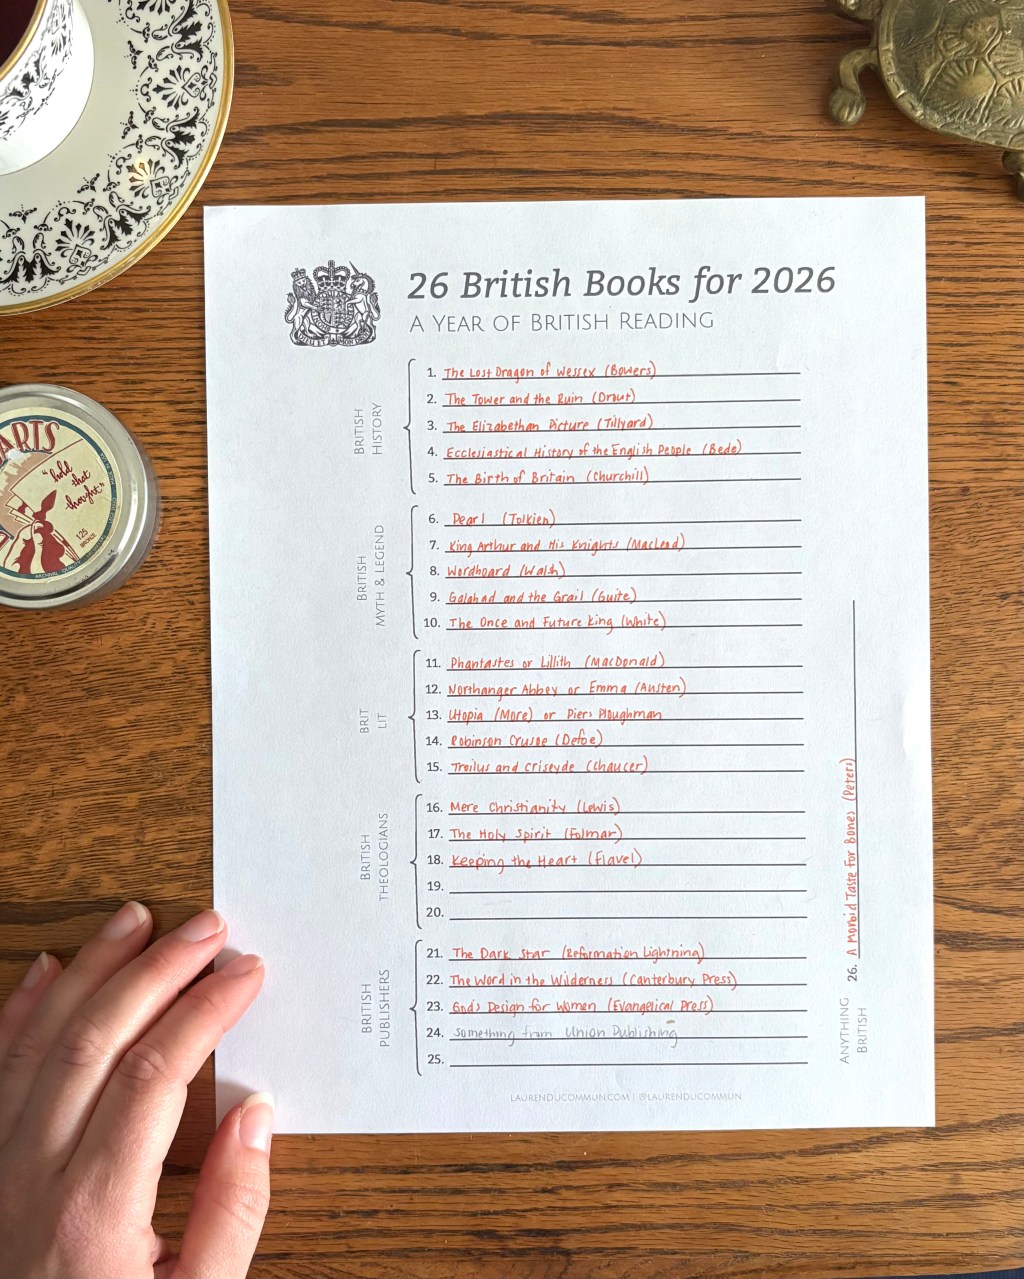 ARTS
"hold that thought"
125
BRONZE
26 British Books for 2026
A YEAR OF BRITISH READING
BRITISH HISTORY
1. The Lost Dragon of Wessex (Bowers)
2. The Tower and the Ruin (Drout)
3. The Elizabethan Picture (Tillyard)
4. Ecclesiastical History of the English People (Bede)
5. The Birth of Britain (Churchill)
BRITISH MYTH & LEGEND
6. Pearl (Tolkien)
7. King Arthur and His Knights (MacLeod)
8. Wordhoard (Walsh)
9. Galahad and the Grail (Guite)
10. The Once and Future King (White)
BRIT LIT
11. Phantastes or Lillith (MacDonald)
12. Northanger Abbey or Emma (Austen)
13. Utopia (More) or Piers Ploughman
14. Robinson Crusoe (Defoe)
15. Troilus and Criseyde (Chaucer)
BRITISH THEOLOGIANS
16. Mere Christianity (Lewis)
17. The Holy Spirit (Folmar)
18. Keeping the Heart (Flavel)
19.
20.
BRITISH PUBLISHERS
21. The Dark Star (Reformation Lightning)
22. The Word in the Wilderness (Canterbury Press)
23. God's Design for Women (Evangelical Press)
24. Something from Union Publishing
25.
ANYTHING BRITISH
26. A Morbid Taste For Bones (Peters)
LAURENDUCOMMUN.COM | @LAURENDUCOMMUN